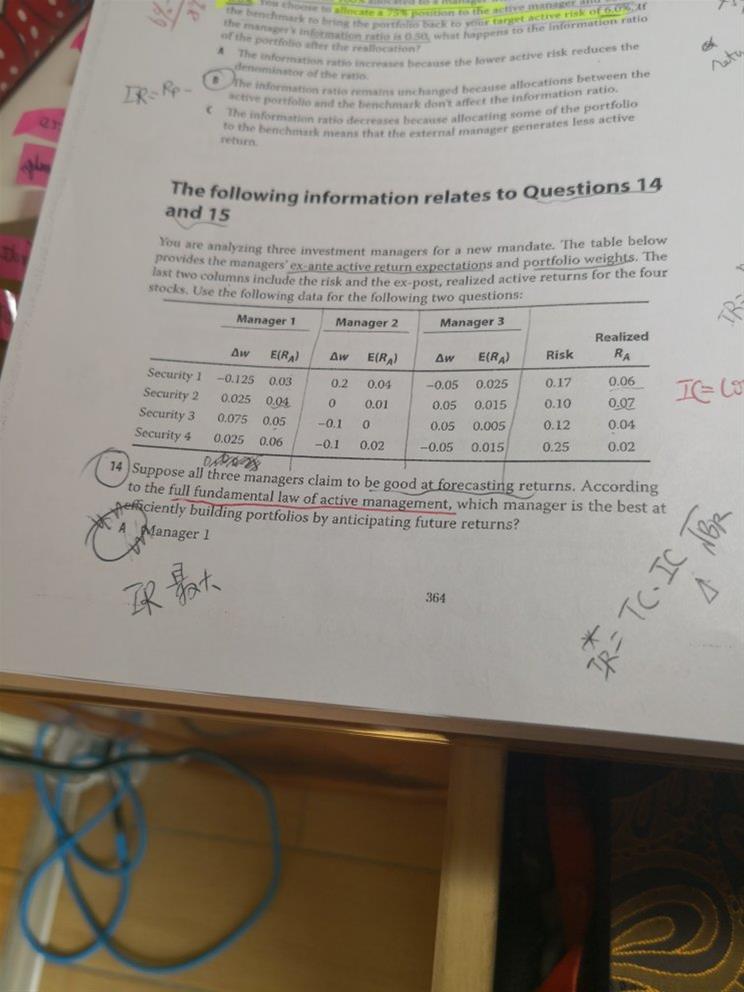 You choose to allocate a 75% position to the active manager and
the benchmark to bring the portfolio back to your target active risk of 6.0%. If
the manager's information ratio is 0.50, what happens to the information ratio
of the portfolio after the reallocation?
A The information ratio increases because the lower active risk reduces the
denominator of the ratio.
B The information ratio remains unchanged because allocations between the
active portfolio and the benchmark don't affect the information ratio.
C The information ratio decreases because allocating some of the portfolio
to the benchmark means that the external manager generates less active
return.
IR = Rp -
The following information relates to Questions 14
and 15
You are analyzing three investment managers for a new mandate. The table below
provides the managers' ex-ante active return expectations and portfolio weights. The
last two columns include the risk and the ex-post, realized active returns for the four
stocks. Use the following data for the following two questions:
Manager 1 Manager 2 Manager 3
Realized
Δw E(RA) Δw E(RA) Δw E(RA) Risk RA
Security 1 −0.125 0.03 0.2 0.04 −0.05 0.025 0.17 0.06
Security 2 0.025 0.04 0 0.01 0.05 0.015 0.10 0.07
Security 3 0.075 0.05 −0.1 0 0.05 0.005 0.12 0.04
Security 4 0.025 0.06 −0.1 0.02 −0.05 0.015 0.25 0.02
IR=
14 Suppose all three managers claim to be good at forecasting returns. According
to the full fundamental law of active management, which manager is the best at
efficiently building portfolios by anticipating future returns?
A Manager 1
IR 最大
364
*
IR = TC · IC √BR